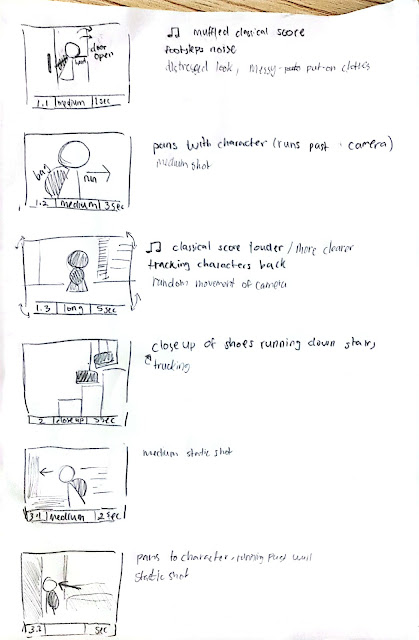 ♫ muffled classical score
footsteps noise
distressed look, messy put-on clothes
door
open
1.1 medium 1sec
pans with character (runs past camera)
medium shot
bag
run
1.2 medium 3sec
♫ classical score louder / more clearer
tracking characters back
random movement of camera
1.3 long 5sec
close up of shoes running down stairs
tracking
2 close up 5sec
medium static shot
3.1 medium 2sec
pans to character running past
static shot
3.2 sec